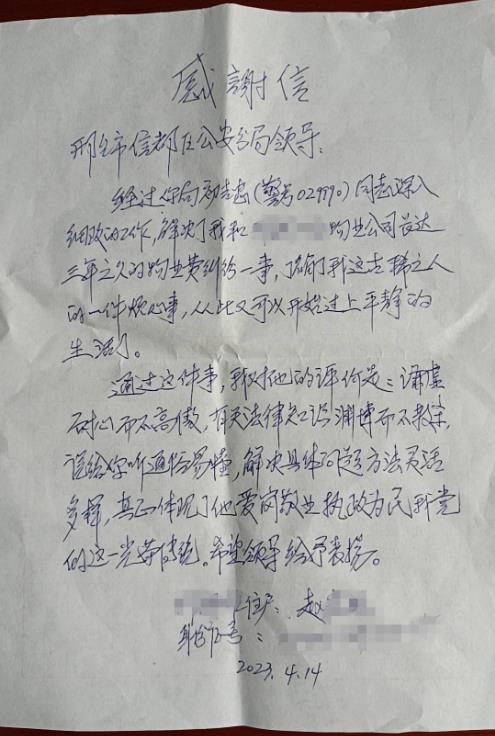 感謝信
邢台市信都区公安分局领导:
经过你局郭志忠(警号029990)同志深入
细致的工作,解决了我和物业公司长达
三年之久的物业费纠纷一事,了却了我这古稀之人
的一件烦心事,从此又可以开始过上平静的
生活了。
通过这件事,我对他的评价是:谦虚
耐心而不高傲,有关法律知识渊博而不教条,
说给你听通俗易懂,解决具体问题方法灵活
多样,真正体现了他爱岗敬业执政为民我党
的这一光荣传统。希望领导给予表扬。
住户:赵
身份证号:
2023.4.14